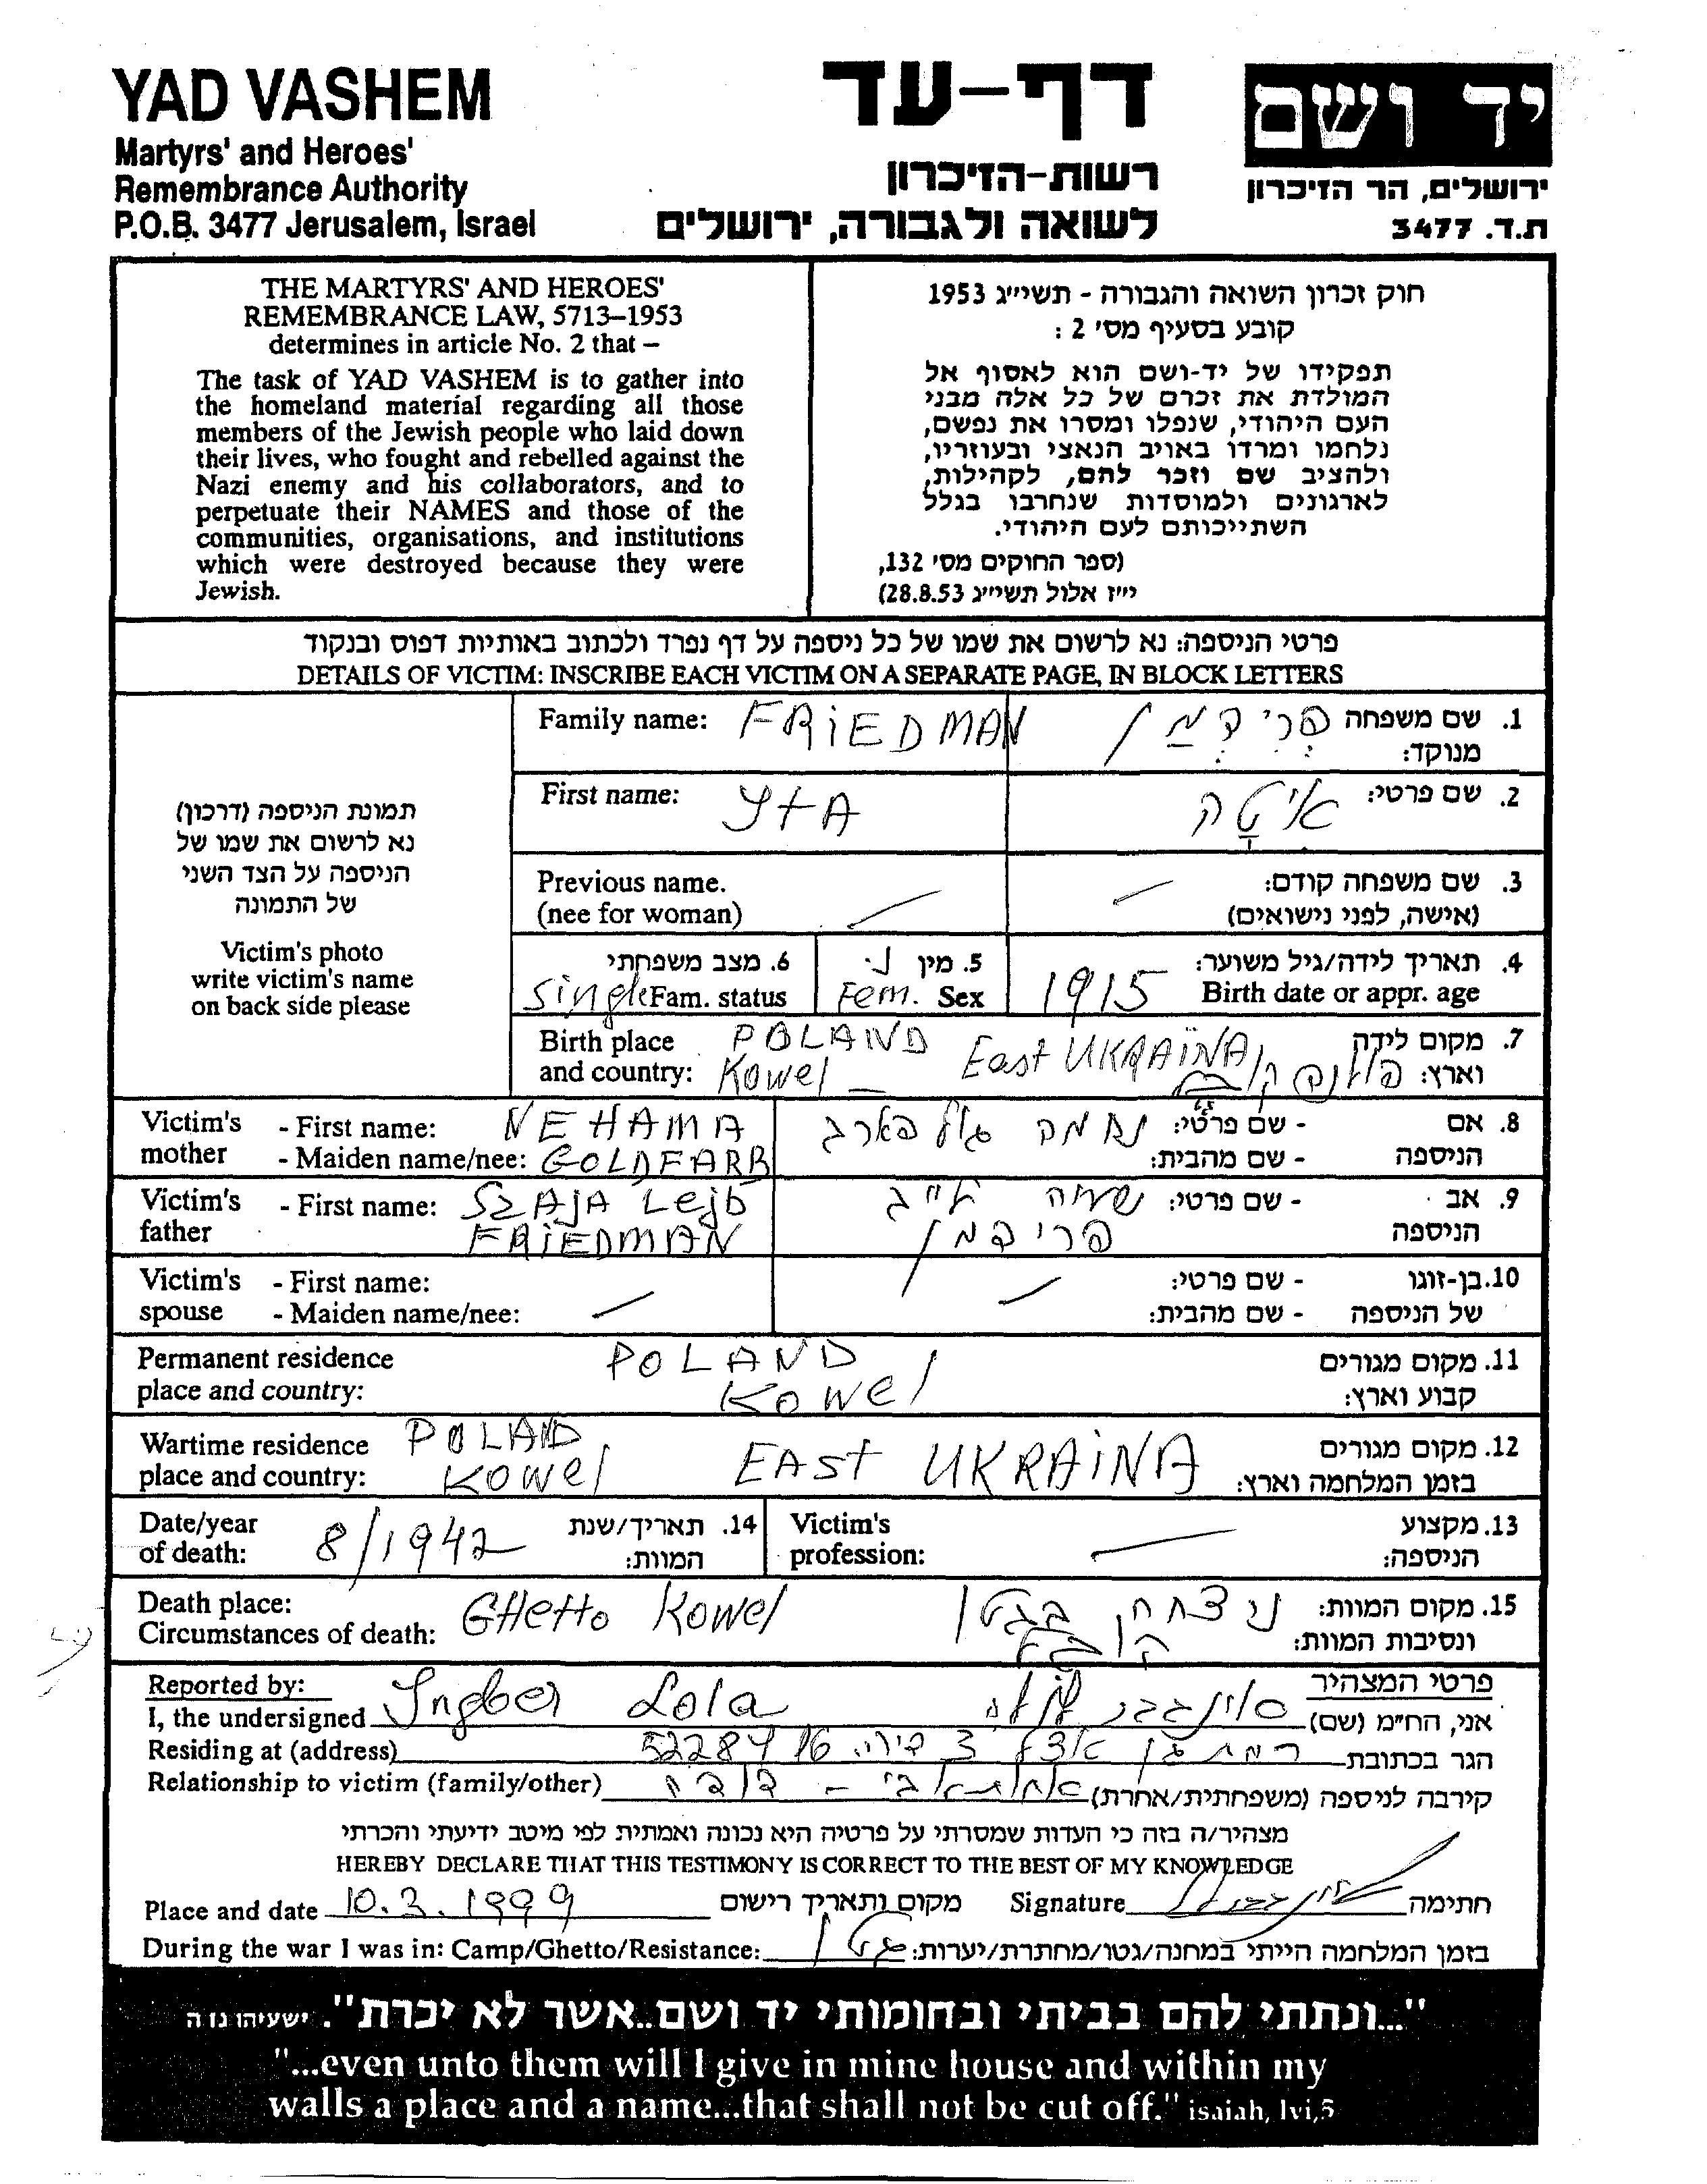 YAD VASHEM
Martyrs' and Heroes'
Remembrance Authority
P.O.B. 3477 Jerusalem, Israel
דף-עד
רשות-הזיכרון
לשואה ולגבורה, ירושלים
יד ושם
ירושלים, הר הזיכרון
ת.ד. 3477
THE MARTYRS' AND HEROES'
REMEMBRANCE LAW, 5713–1953
determines in article No. 2 that –
The task of YAD VASHEM is to gather into
the homeland material regarding all those
members of the Jewish people who laid down
their lives, who fought and rebelled against the
Nazi enemy and his collaborators, and to
perpetuate their NAMES and those of the
communities, organisations, and institutions
which were destroyed because they were
Jewish.
חוק זכרון השואה והגבורה - תשי״ג 1953
קובע בסעיף מס׳ 2 :
תפקידו של יד-ושם הוא לאסוף אל
המולדת את זכרם של כל אלה מבני
העם היהודי, שנפלו ומסרו את נפשם,
נלחמו ומרדו באויב הנאצי ובעוזריו,
ולהציב שם וזכר להם, לקהילות,
לארגונים ולמוסדות שנחרבו בגלל
השתייכותם לעם היהודי.
(ספר החוקים מס׳ 132,
י״ז אלול תשי״ג 28.8.53)
פרטי הניספה: נא לרשום את שמו של כל ניספה על דף נפרד ולכתוב באותיות דפוס ובנקוד
DETAILS OF VICTIM: INSCRIBE EACH VICTIM ON A SEPARATE PAGE, IN BLOCK LETTERS
תמונת הניספה (דרכון)
נא לרשום את שמו של
הניספה על הצד השני
של התמונה
Victim's photo
write victim's name
on back side please
Family name: FRiEDMAN
1. שם משפחה פרידמן
מנוקד:
First name: YtA
2. שם פרטי: איטה
Previous name.
(nee for woman)
3. שם משפחה קודם:
(אישה, לפני נישואים)
6. מצב משפחתי
Single Fam. status
5. מין נ.
Fem. Sex
4. תאריך לידה/גיל משוער:
1915 Birth date or appr. age
Birth place POLAND East UKRAiNA
and country: Kowel
7. מקום לידה
וארץ:
Victim's - First name: NEHAMA
mother - Maiden name/nee: GOLDFARB
8. אם - שם פרטי: נחמה גולפארב
הניספה - שם מהבית:
Victim's - First name: SZAJA Lejb
father FRiEDMAN
9. אב - שם פרטי: לייב
הניספה פרידמן
Victim's - First name:
spouse - Maiden name/nee:
10. בן-זוגו - שם פרטי:
של הניספה - שם מהבית:
Permanent residence POLAND
place and country: Kowel
11. מקום מגורים
קבוע וארץ:
Wartime residence POLAND
place and country: Kowel EASt UKRAiNA
12. מקום מגורים
בזמן המלחמה וארץ:
Date/year
of death: 8/1942
14. תאריך/שנת
המוות:
Victim's
profession:
13. מקצוע
הניספה:
Death place:
Circumstances of death: GHetto Kowel
15. מקום המוות: בגטו
ונסיבות המוות:
Reported by:
I, the undersigned Ingber Lola
פרטי המצהיר
אני, הח״מ (שם) אינגבר לולה
Residing at (address)
הגר בכתובת רמת גן 3 דירה 16 52284
Relationship to victim (family/other)
קירבה לניספה (משפחתית/אחרת) דודה
מצהיר/ה בזה כי העדות שמסרתי על פרטיה היא נכונה ואמתית לפי מיטב ידיעתי והכרתי
HEREBY DECLARE THAT THIS TESTIMONY IS CORRECT TO THE BEST OF MY KNOWLEDGE
Place and date 10.3.1999 מקום ותאריך רישום
Signature חתימה
During the war I was in: Camp/Ghetto/Resistance: גטו בזמן המלחמה הייתי במחנה/גטו/מחתרת/יערות:
"...ונתתי להם בביתי ובחומותי יד ושם..אשר לא יכרת". ישעיהו נו ה
"...even unto them will I give in mine house and within my
walls a place and a name...that shall not be cut off." isaiah, lvi,5